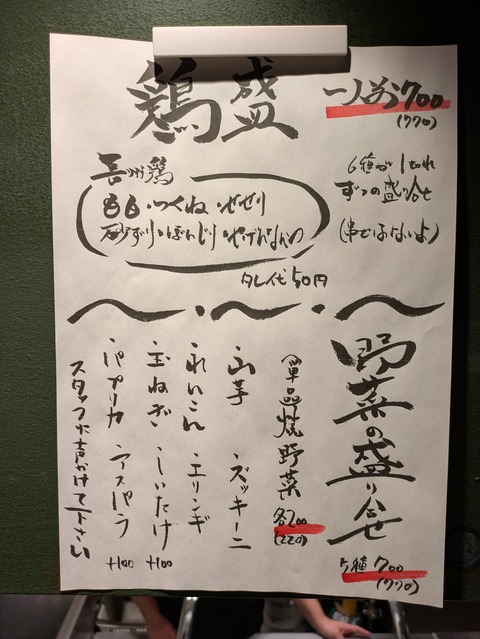 鶏盛
一人前700
(770)
長州鶏
もも・つくね・せせり
砂ずり・ぼんじり・やげんなんこつ
6種が1切れ
ずつの盛り合せ
(串ではないよ)
タレ代50円
野菜の盛り合せ
5種700
(770)
単品焼野菜 各200
(220)
・山芋 ・ズッキーニ
・れんこん ・エリンギ
・玉ねぎ ・しいたけ +100
・パプリカ ・アスパラ +100
スタッフに声かけて下さい